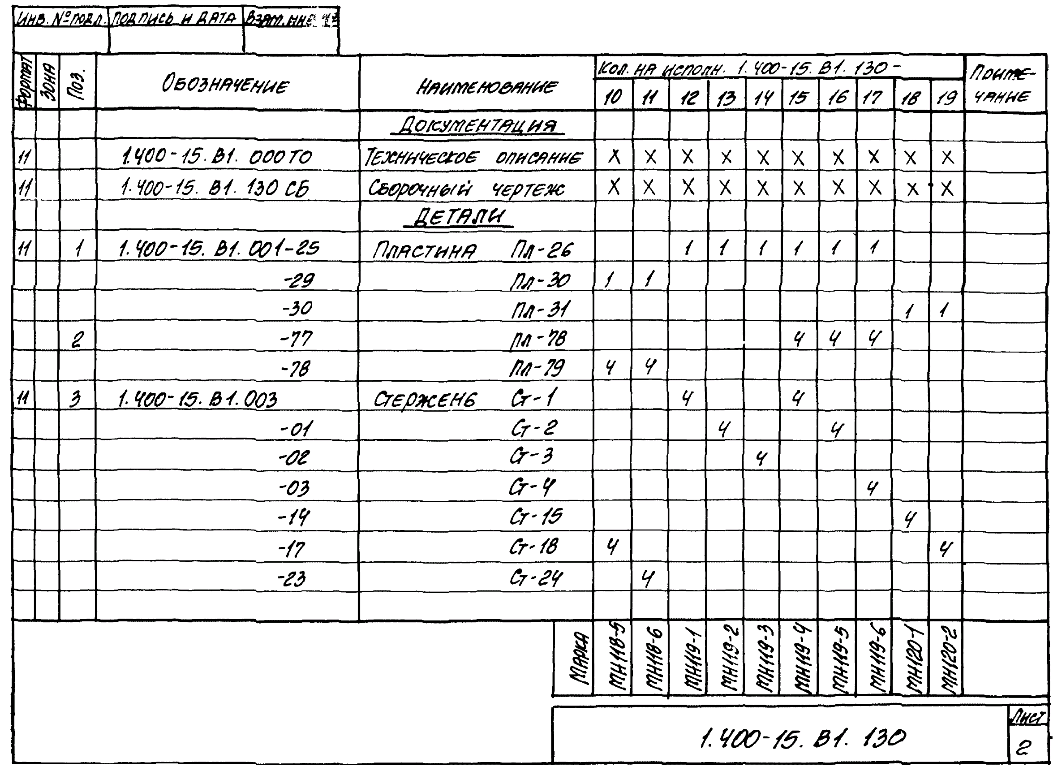 Инв. № подл. Подпись и дата Взам. инв. №
Формат Зона Поз. Обозначение Наименование Кол. на исполн. 1.400-15.В1.130- Примечание
10 11 12 13 14 15 16 17 18 19
Документация
11 1.400-15.В1.000ТО Техническое описание X X X X X X X X X X
11 1.400-15.В1.130 СБ Сборочный чертеж X X X X X X X X X X
Детали
11 1 1.400-15.В1.001-25 Пластина Пл-26 1 1 1 1 1 1
-29 Пл-30 1 1
-30 Пл-31 1 1
2 -77 Пл-78 4 4 4
-78 Пл-79 4 4
11 3 1.400-15.В1.003 Стержень Ст-1 4 4
-01 Ст-2 4 4
-02 Ст-3 4
-03 Ст-4 4
-14 Ст-15 4
-17 Ст-18 4 4
-23 Ст-24 4
Марка МН118-5 МН118-6 МН119-1 МН119-2 МН119-3 МН119-4 МН119-5 МН119-6 МН120-1 МН120-2
1.400-15.В1.130
Лист
2